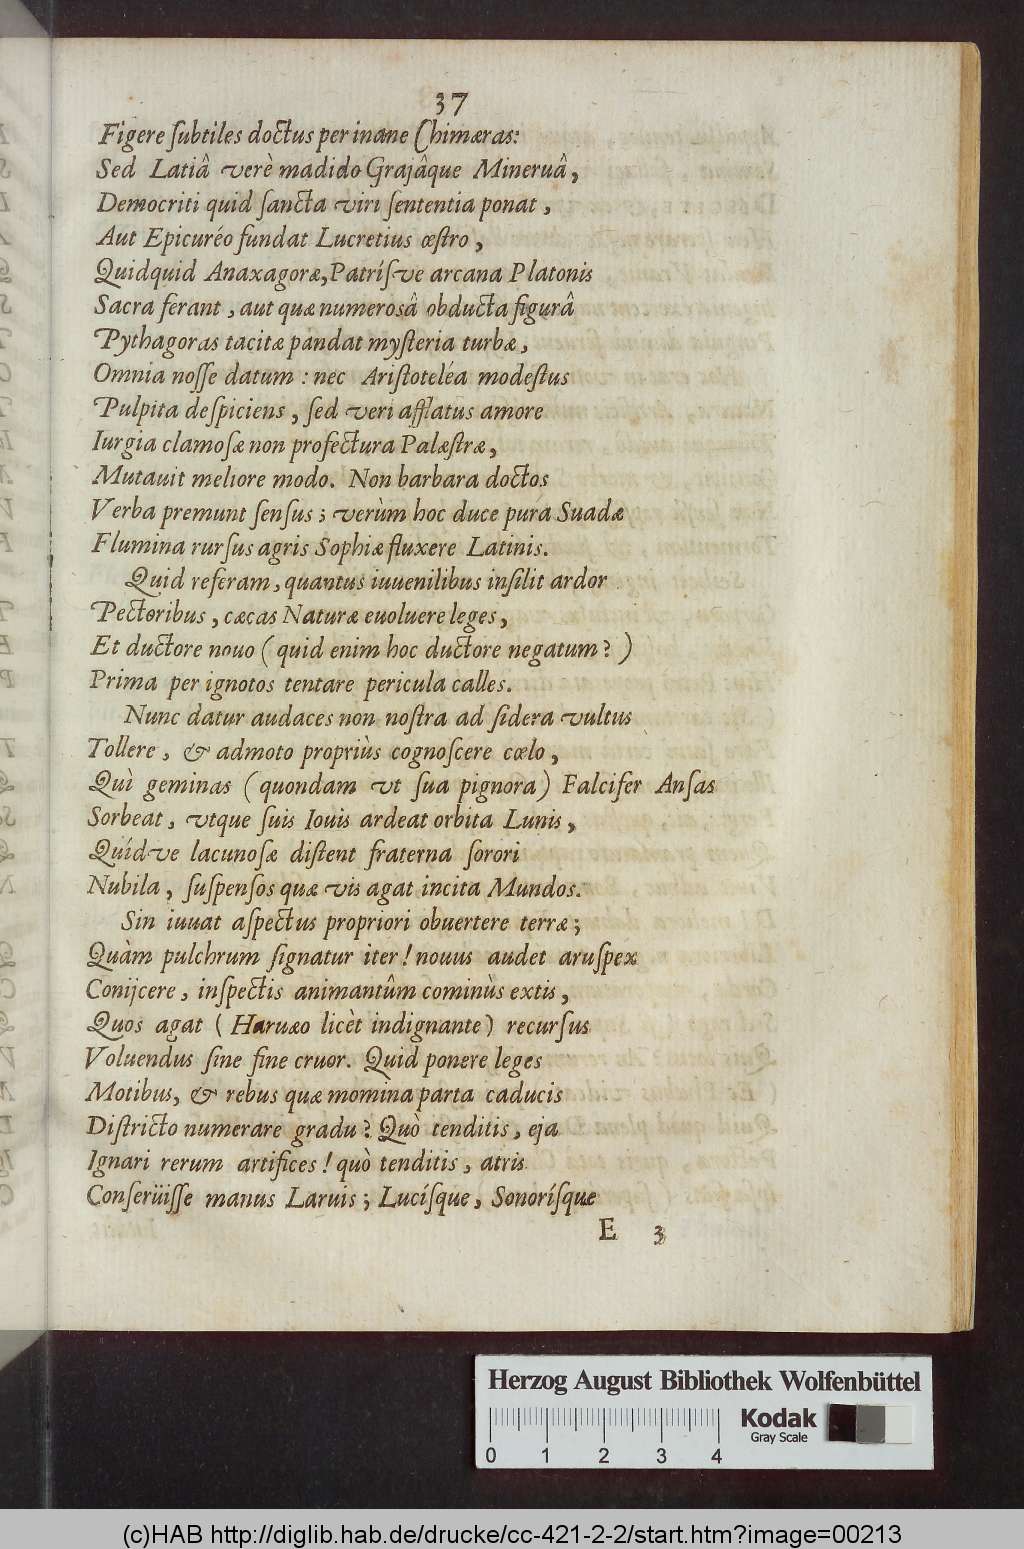 37
Figere ſubtiles doctus per inane Chimæras:
Sed Latiâ verè madido Grajâque Mineruâ,
Democriti quid ſancta viri ſententia ponat,
Aut Epicuréo fundat Lucretius œſtro,
Quidquid Anaxagoræ, Patríſve arcana Platonis
Sacra ferant, aut quæ numerosâ obducta figurâ
Pythagoras tacitæ pandat myſteria turbæ,
Omnia noſſe datum: nec Ariſtoteléa modeſtus
Pulpita deſpiciens, ſed veri afflatus amore
Iurgia clamoſæ non profectura Palæſtræ,
Mutauit meliore modo. Non barbara doctos
Verba premunt ſenſus; verùm hoc duce pura Suadæ
Flumina rurſus agris Sophiæ fluxere Latinis.
Quid referam, quantus iuuenilibus inſilit ardor
Pectoribus, cæcas Naturæ euoluere leges,
Et ductore nouo (quid enim hoc ductore negatum?)
Prima per ignotos tentare pericula calles.
Nunc datur audaces non noſtra ad ſidera vultus
Tollere, & admoto propriùs cognoſcere cœlo,
Quì geminas (quondam vt ſua pignora) Falcifer Anſas
Sorbeat, vtque ſuis Iouis ardeat orbita Lunis,
Quídve lacunoſæ diſtent fraterna ſorori
Nubila, ſuſpenſos quæ vis agat incita Mundos.
Sin iuuat aſpectus propriori obuertere terræ;
Quàm pulchrum ſignatur iter! nouus audet aruſpex
Conijcere, inſpectis animantûm cominùs extis,
Quos agat (Haruæo licèt indignante) recurſus
Voluendus ſine fine cruor. Quid ponere leges
Motibus, & rebus quæ momina parta caducis
Diſtricto numerare gradu? Quò tenditis, eja
Ignari rerum artifices! quò tenditis, atris
Conſerüiſſe manus Laruis; Lucíſque, Sonoríſque
E 3
Herzog August Bibliothek Wolfenbüttel
Kodak
Gray Scale
0 1 2 3 4
(c)HAB http://diglib.hab.de/drucke/cc-421-2-2/start.htm?image=00213